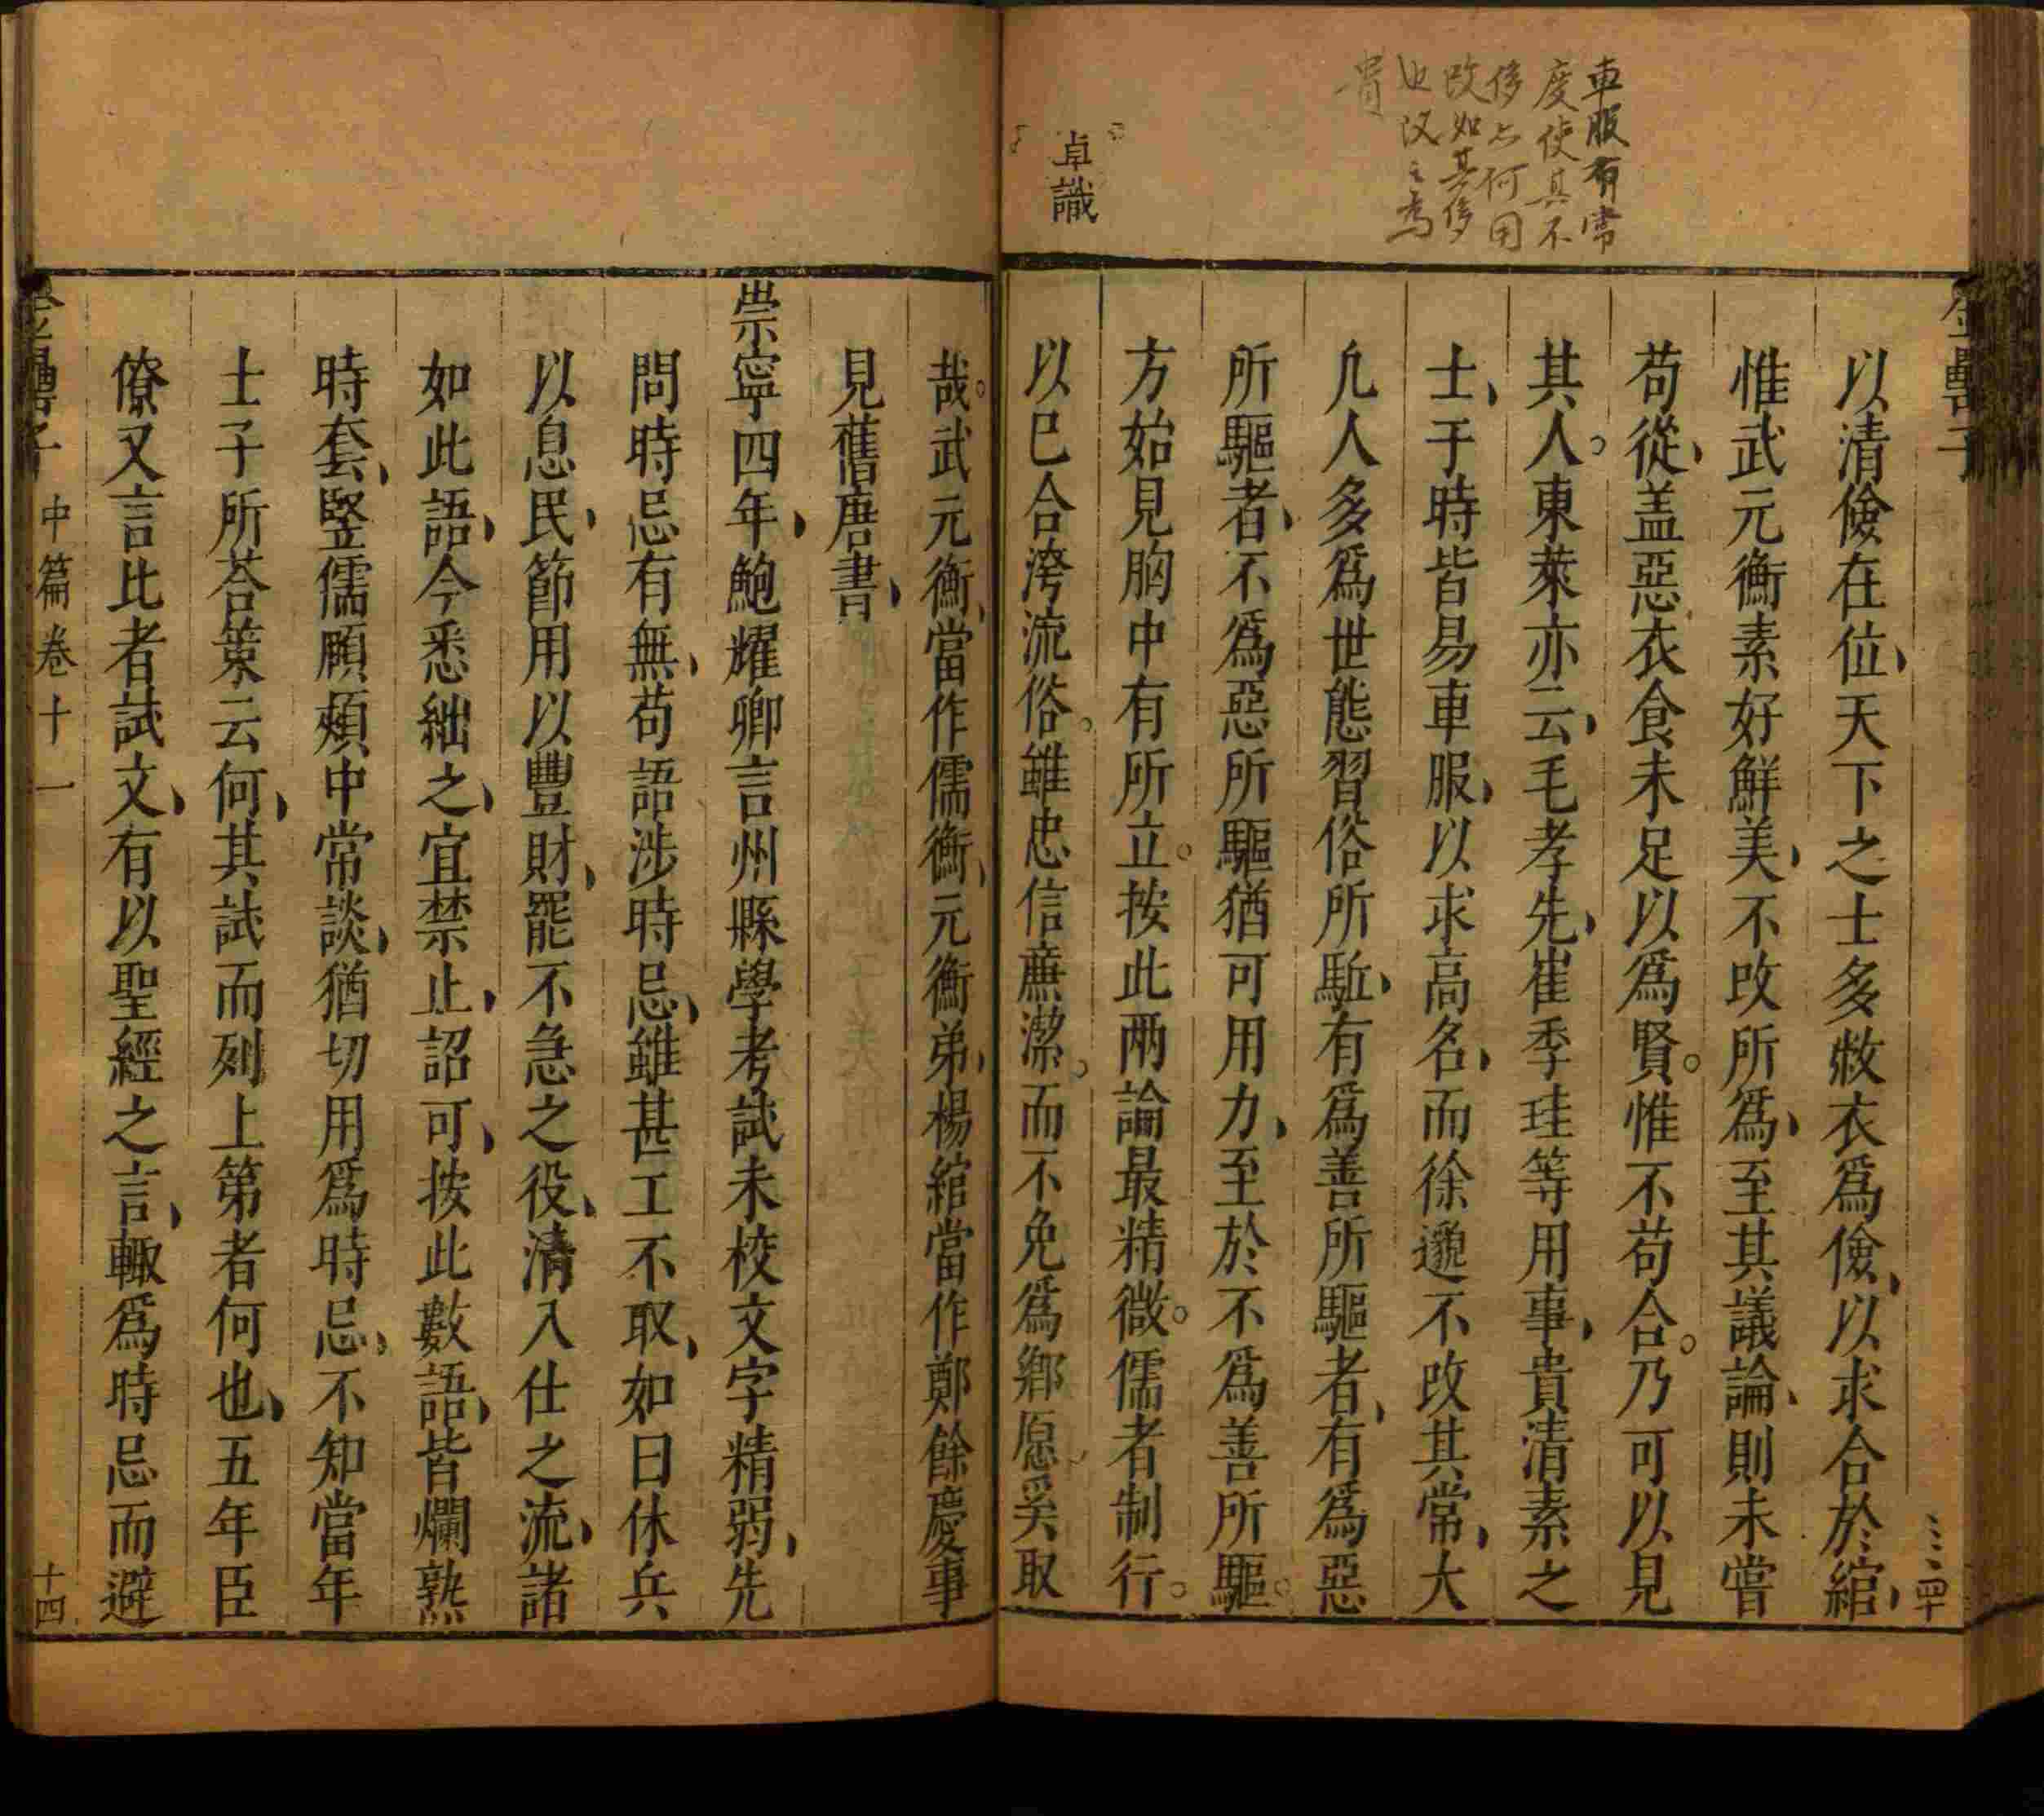 車服有常
度使其不
侈与何用
改如其侈
也汉之為
卓識
以清儉在位天下之士多敝衣爲儉以求合於綰
惟武元衡素好鮮美不改所爲至其議論則未嘗
苟從盖惡衣食未足以爲賢惟不苟合乃可以見
其人東萊亦云毛孝先崔季珪等用事貴清素之
士于時皆易車服以求高名而徐邈不改其常大
凡人多爲世態習俗所駈有爲善所驅者有爲惡
所驅者不爲惡所驅猶可用力至於不爲善所驅
方始見胸中有所立按此两論最精微儒者制行
以已合洿流俗雖忠信廉潔而不免爲鄉愿奚取
哉武元衡當作儒衡元衡弟楊綰當作鄭餘慶事
見舊唐書
崇寧四年鮑耀卿言州縣學考試未校文字精弱先
問時忌有無苟語涉時忌雖甚工不取如曰休兵
以息民節用以豐財罷不急之役清入仕之流諸
如此語今悉絀之宜禁止詔可按此數語皆爛熟
時套豎儒頤頰中常談猶切用爲時忌不知當年
士子所荅策云何其試而列上第者何也五年臣
僚又言比者試文有以聖經之言輙爲時忌而避
中篇卷十一
十四